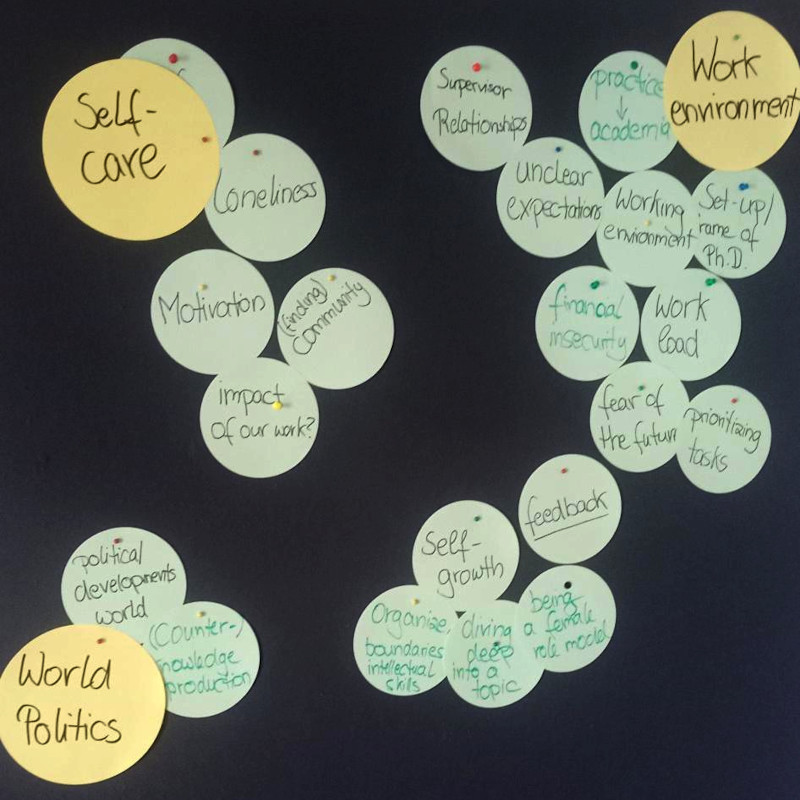 Self-
care
Loneliness
Motivation
(finding)
Community
impact
of our work?
Supervisor
Relationships
practice
↓
academia
Work
environment
unclear
expectations
Working
environment
Set-up/
rame of
Ph.D.
financial
insecurity
work
load
fear of
the future
prioritizing
tasks
feedback
Self-
growth
Organize,
boundaries
intellectual
skills
diving
deep
into a
topic
being
a female
role model
political
developments
world
(Counter-)
nowledge
production
World
Politics